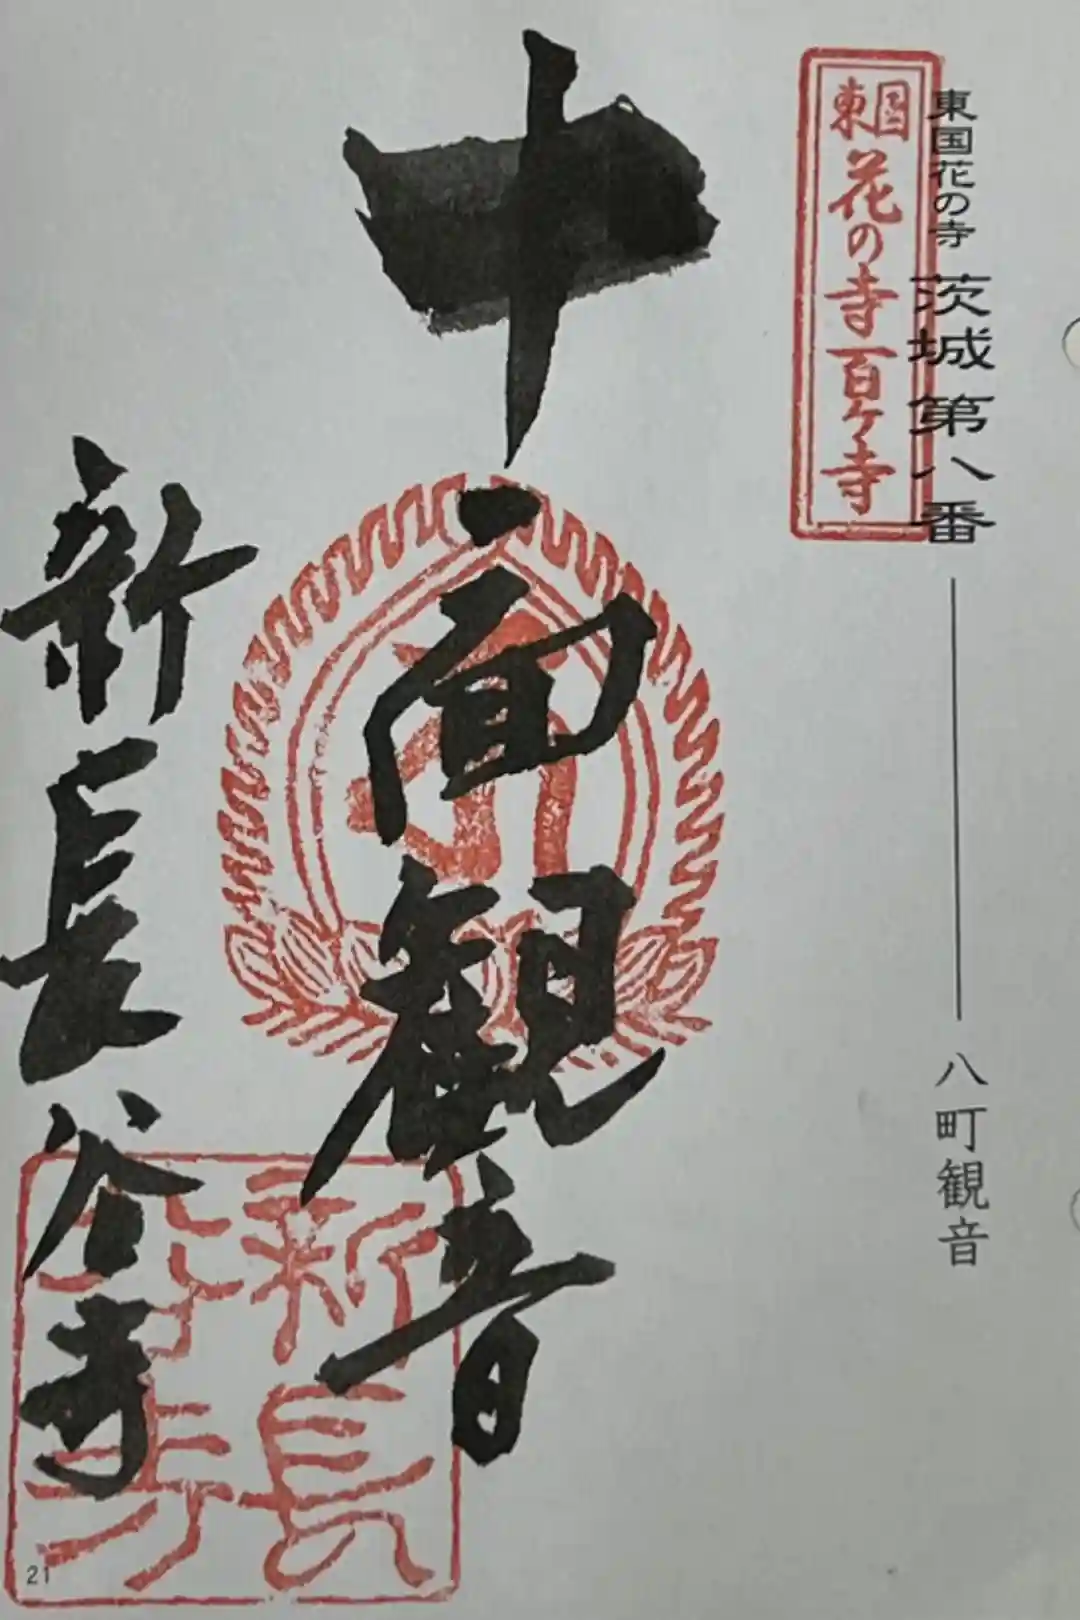 東国花の寺 茨城第八番
八町観音
東国
花の寺百ヶ寺
十一面観音
新長谷寺
新長
谷寺
21